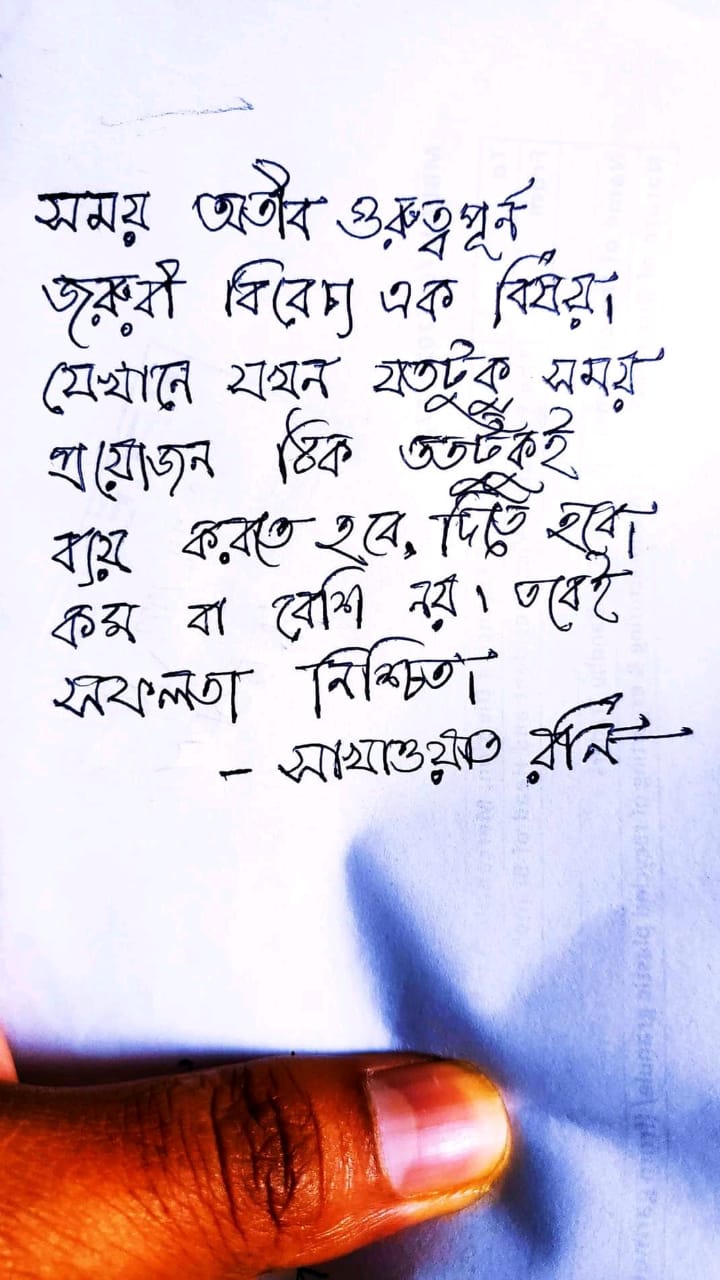 সময় অতীব গুরুত্বপূর্ন
জরুরী বিবেচ্য এক বিষয়।
যেখানে যখন যতটুকু সময়
প্রয়োজন ঠিক ততটুকুই
ব্যয় করতে হবে, দিতে হবে।
কম বা বেশি নয়। তবেই
সফলতা নিশ্চিত।
- সাখাওয়াত রনি